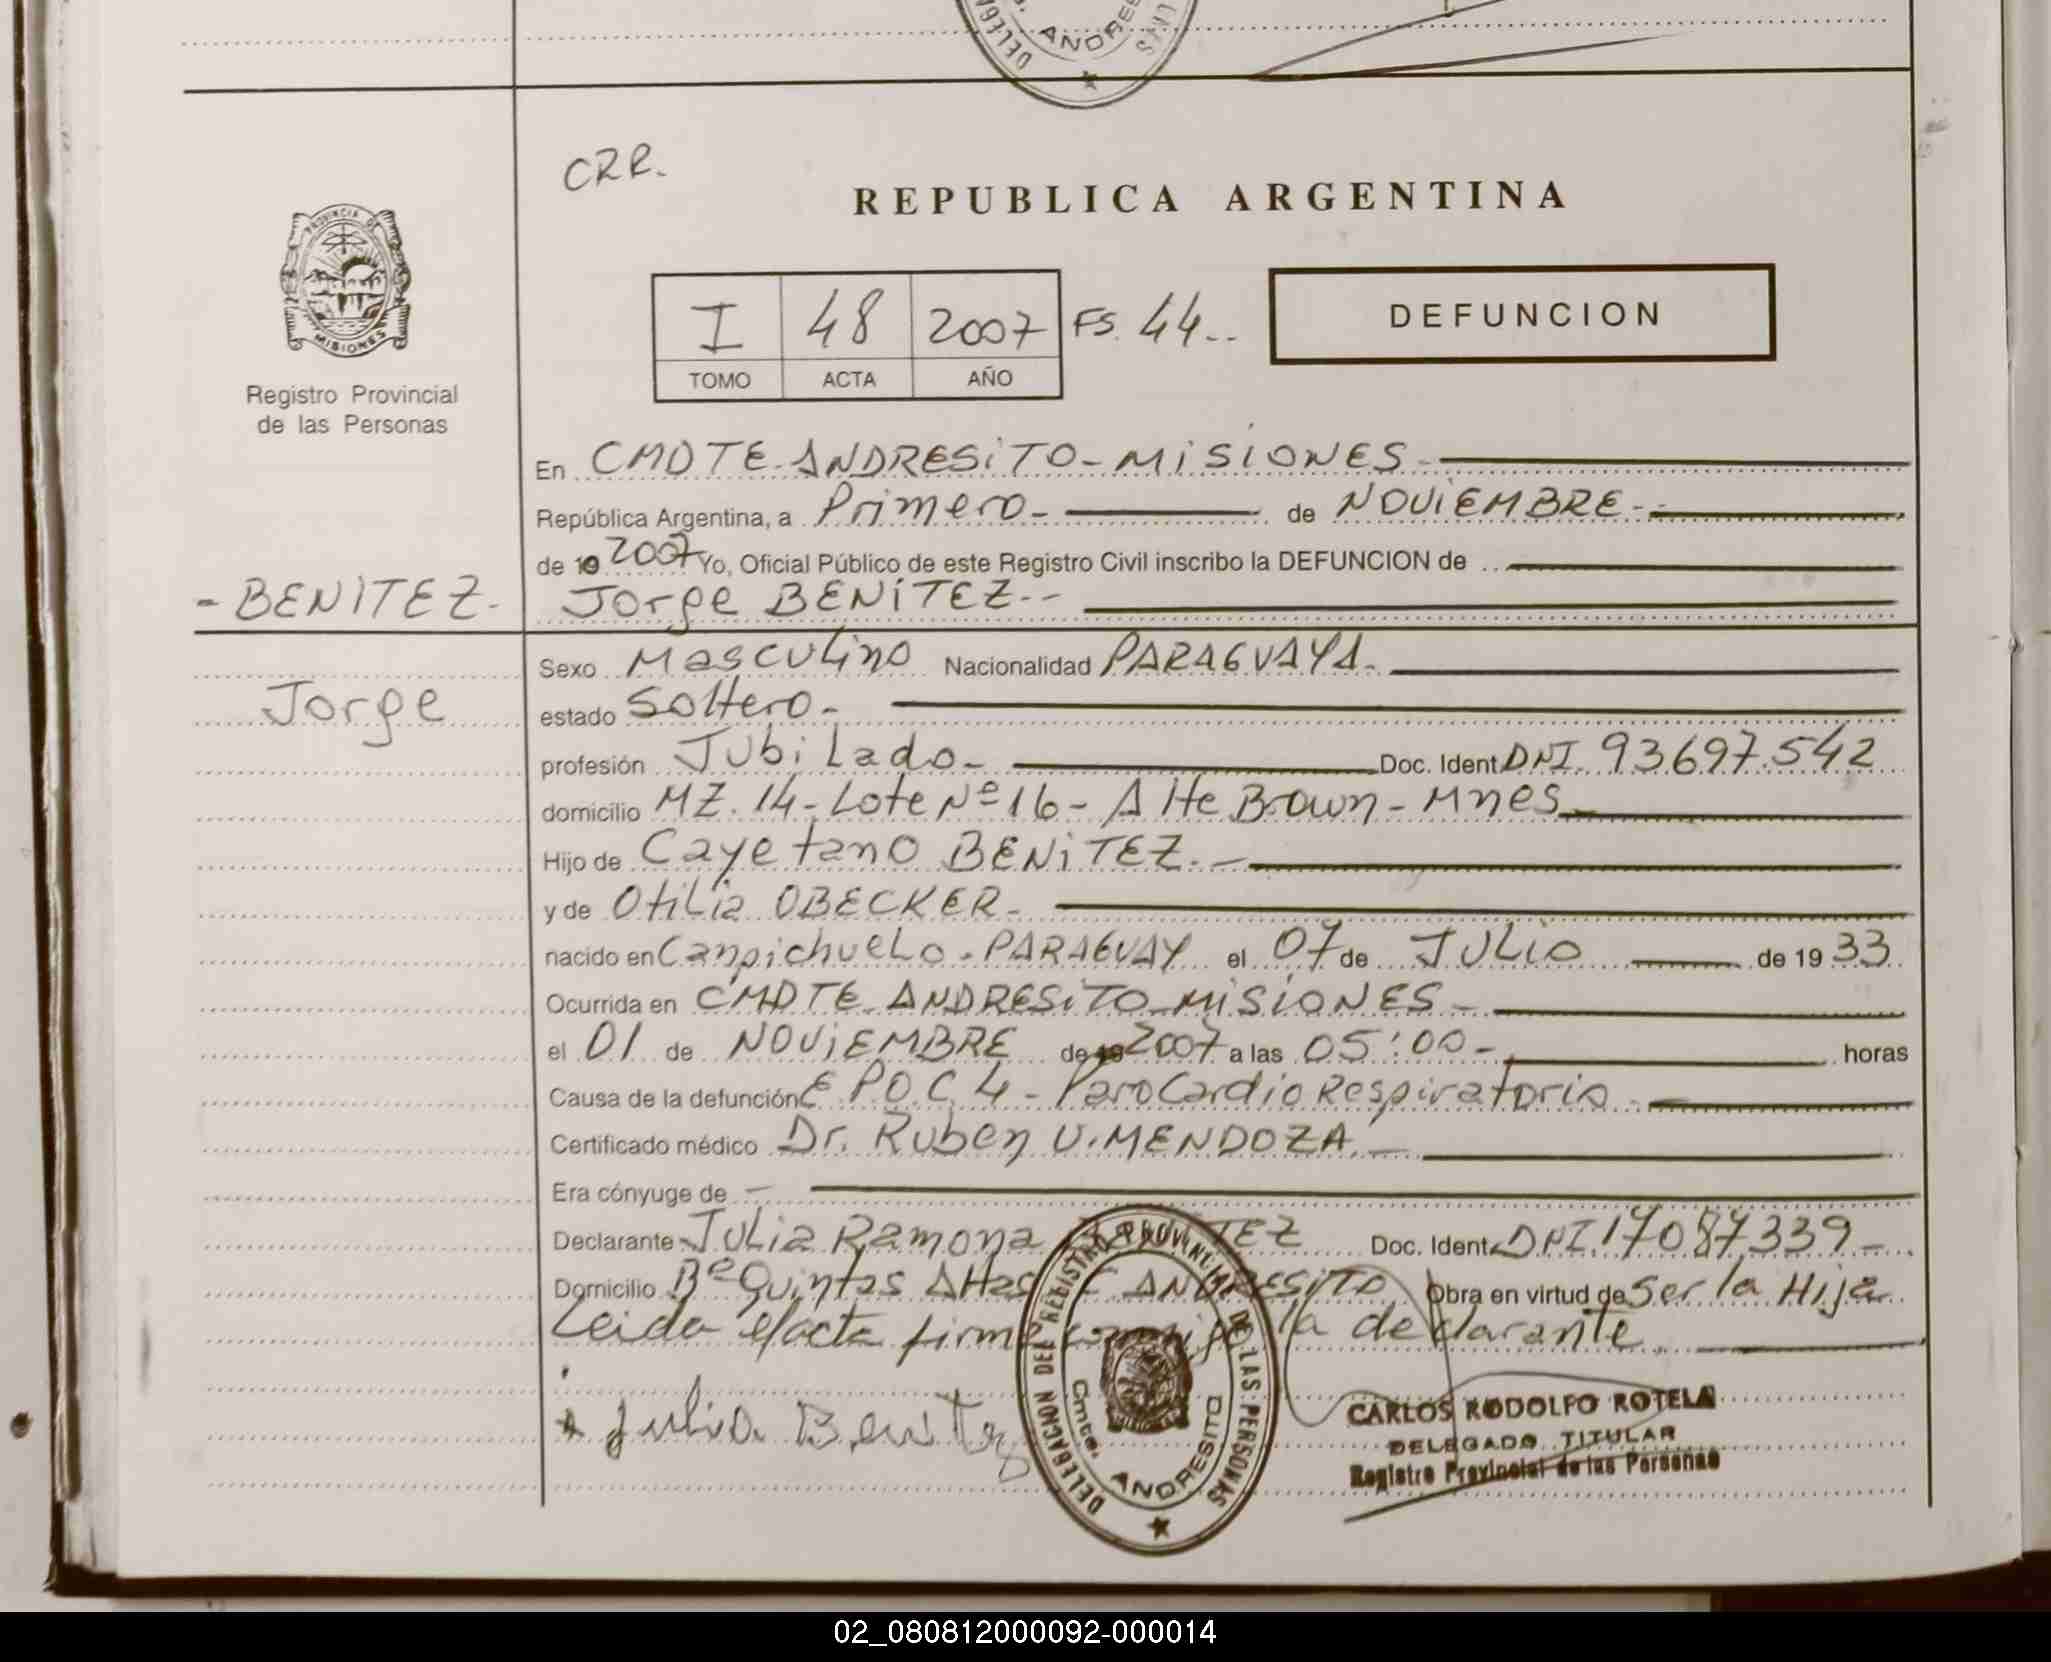 DELEGA ANDRES LAS
★
CRR.
REPUBLICA ARGENTINA
PROVINCIA DE
MISIONES
Registro Provincial
de las Personas
I 48 2007 FS. 44..
TOMO ACTA AÑO
DEFUNCION
En CMDTE. ANDRESiTO - MiSiONES -
República Argentina, a Primero - de NOViEMBRE -
de 19 2007 Yo, Oficial Público de este Registro Civil inscribo la DEFUNCION de
- BENITEZ - Jorge BENiTEZ --
Sexo Masculino Nacionalidad PARAGUAYA.
Jorge
estado Soltero -
profesión Jubilado - Doc. Ident DNI. 93697.542
domicilio MZ. 14 - Lote Nº 16 - Alte Brown - Mnes
Hijo de Cayetano BENiTEZ. -
y de Otilia OBECKER -
nacido en Canpichuelo - PARAGUAY el 07 de JULiO de 19 33
Ocurrida en CMDTE. ANDRESiTO - MiSiONES -
el 01 de NOViEMBRE de 19 2007 a las 05:00 - horas
Causa de la defunción E P.O.C. 4 - ParoCardioRespiratorio -
Certificado médico Dr. Ruben U. MENDOZA. -
Era cónyuge de -
Declarante Julia Ramona TEZ Doc. Ident. DNI. 17087.339 -
Domicilio Bº Quintas Altas C ANDRESiTO Obra en virtud de Ser la Hija
Leida el acta firma conmigo la declarante.
Julia Benitez
DELEGACION DEL REGISTRO PROVINCIAL DE LAS PERSONAS
Cmte. ANDRESITO
★
CARLOS RODOLFO ROTELA
DELEGADO TITULAR
Registro Provincial de las Personas
02_080812000092-000014